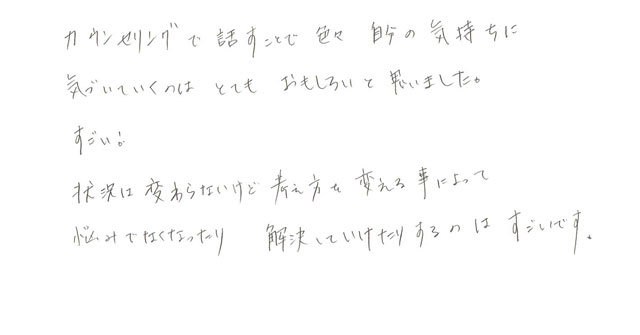 カウンセリングで話すことで色々自分の気持ちに
気づいていくのはとてもおもしろいと思いました。
すごい!
状況は変わらないけど考え方を変える事によって
悩みでなくなったり 解決していけたりするのはすごいです。